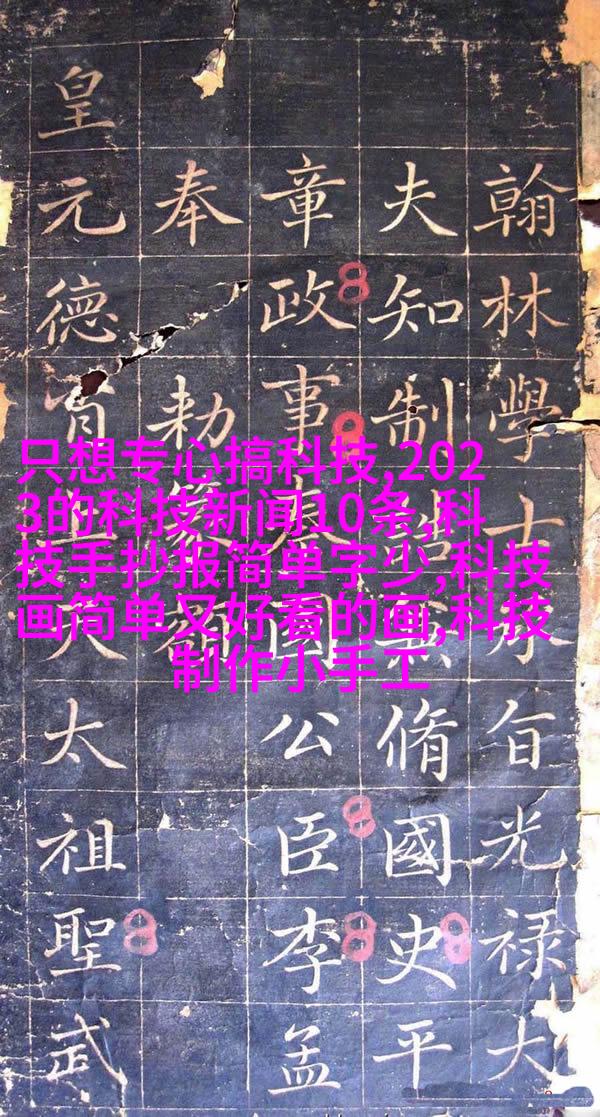 翰林學士承旨光禄大
夫知制誥兼脩國史平
章政事秦國公臣李孟
奉勅篆額
皇元德天太祖聖武
只想专心搞科技,202
3的科技新闻10条,科
技手抄报简单字少,科技
画简单又好看的画,科技
制作小手工